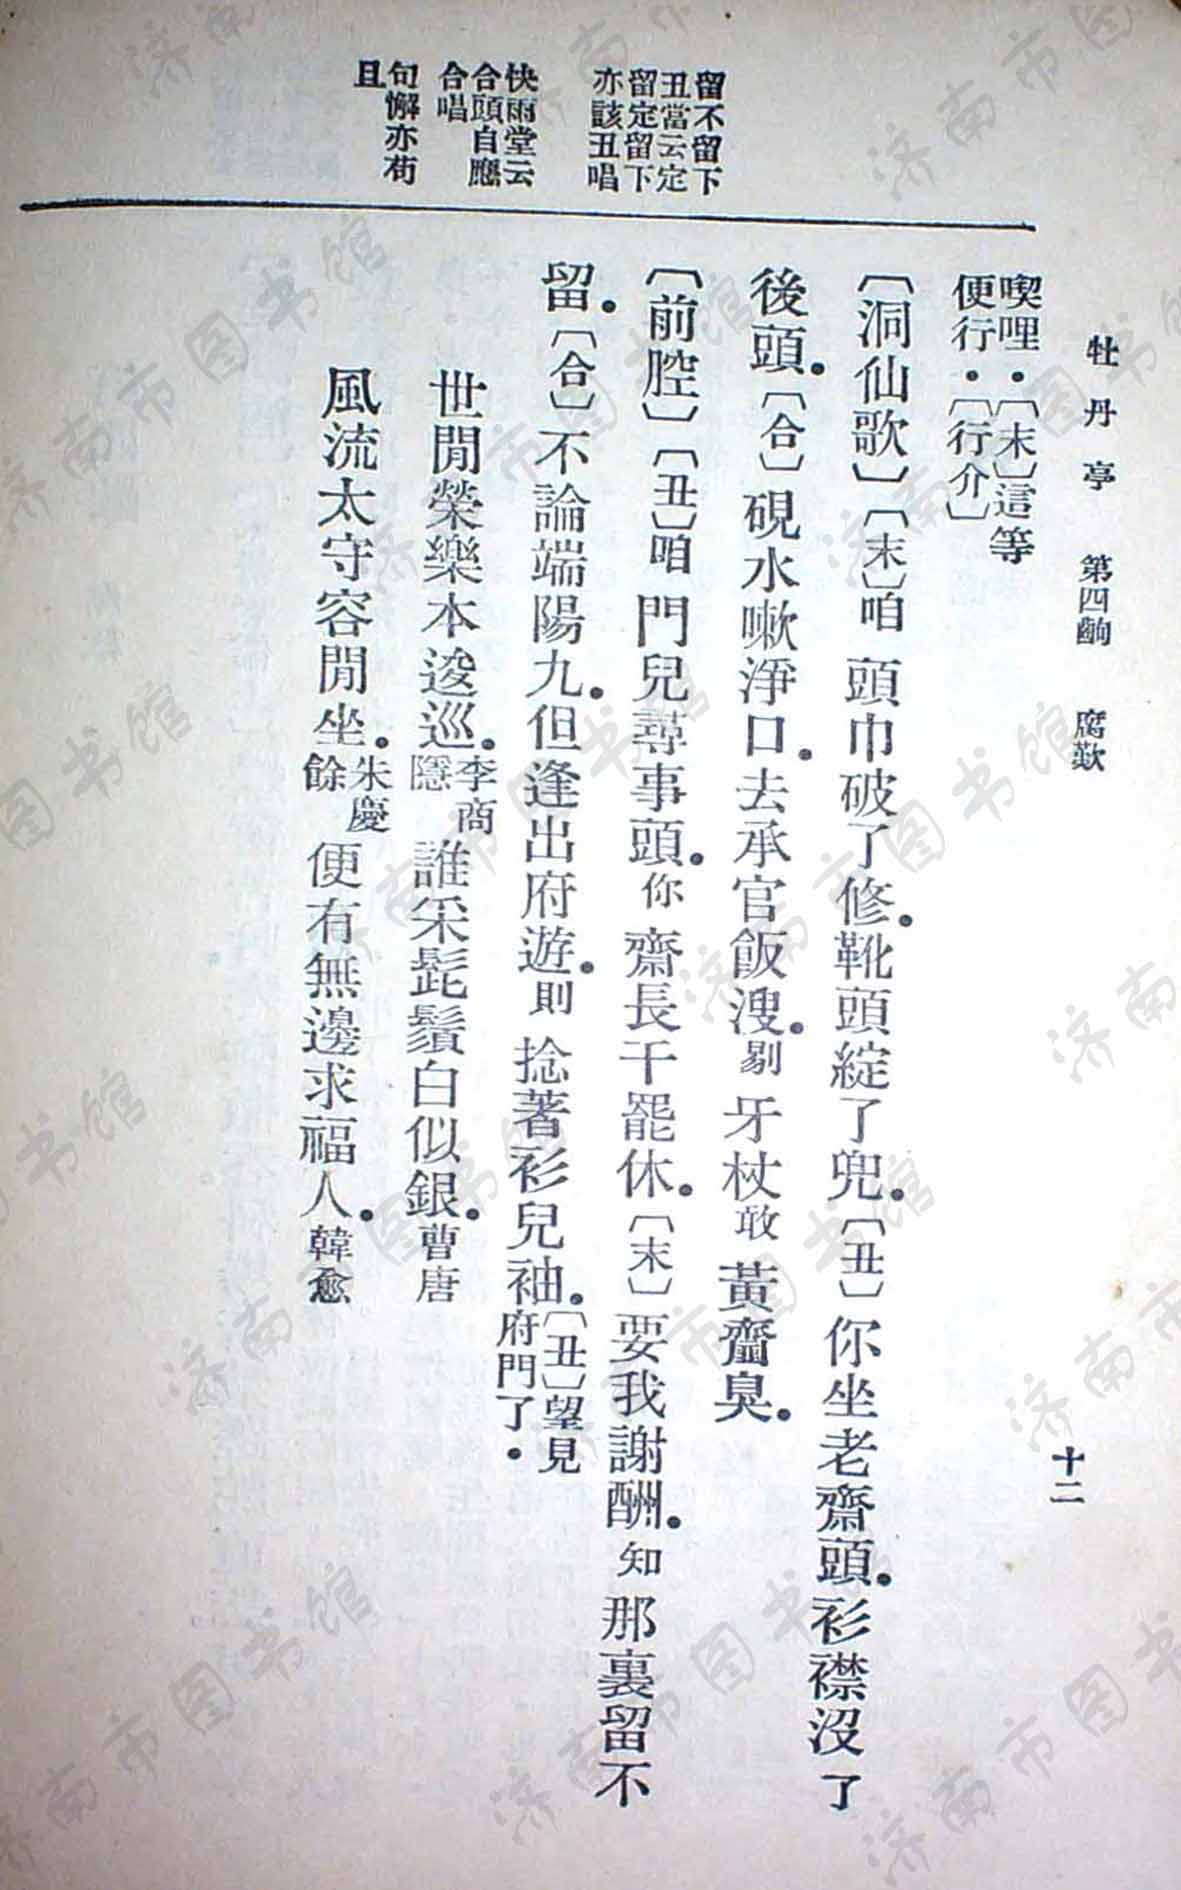 牡丹亭　第四齣　腐歎　十二
留不留下
丑當云定
留定留下
亦該丑唱
快雨堂云
合頭自應
合唱
句懈亦苟
且
喫哩・〔末〕這等
便行・〔行介〕
〔洞仙歌〕〔末〕咱頭巾破了修．靴頭綻了兜．〔丑〕你坐老齋頭．衫襟沒了
後頭．〔合〕硯水嗽淨口．去承官飯溲．剔牙杖敢黃齏臭．
〔前腔〕〔丑〕咱門兒尋事頭．你齋長干罷休．〔末〕要我謝酬．知那裏留不
留．〔合〕不論端陽九．但逢出府遊．則捻著衫兒袖．〔丑〕望見
府門了・
世閒榮樂本逡巡．李商隱　誰采髭鬚白似銀．曹唐
風流太守容閒坐．朱慶餘　便有無邊求福人．韓愈
济南市图书馆